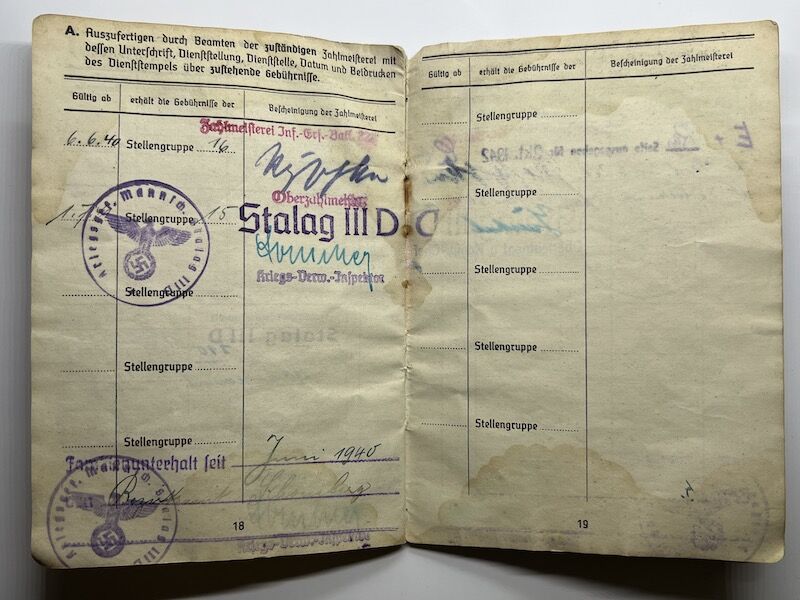 A. Auszufertigen durch Beamten der zuständigen Zahlmeisterei mit
dessen Unterschrift, Dienststellung, Dienststelle, Datum und Beidrucken
des Dienststempels über zustehende Gebührnisse.
Gültig ab erhält die Gebührnisse der Bescheinigung der Zahlmeisterei
Zahlmeisterei Inf.-Ers.-Batl.
6.6.40 Stellengruppe 16
Oberzahlmeister
Stellengruppe 15
Stalag III D
Kriegs-Verw.-Inspektor
Kriegsgef. Mannsch. Stalag III D
Stellengruppe
Stellengruppe
Stellengruppe
Familienunterhalt seit Juni 1940
Kriegsgef. Mannsch. Stalag III D
Kriegs-Verw.-Inspektor
18
Gültig ab erhält die Gebührnisse der Bescheinigung der Zahlmeisterei
Stellengruppe
Stellengruppe
Stellengruppe
Stellengruppe
Stellengruppe
19